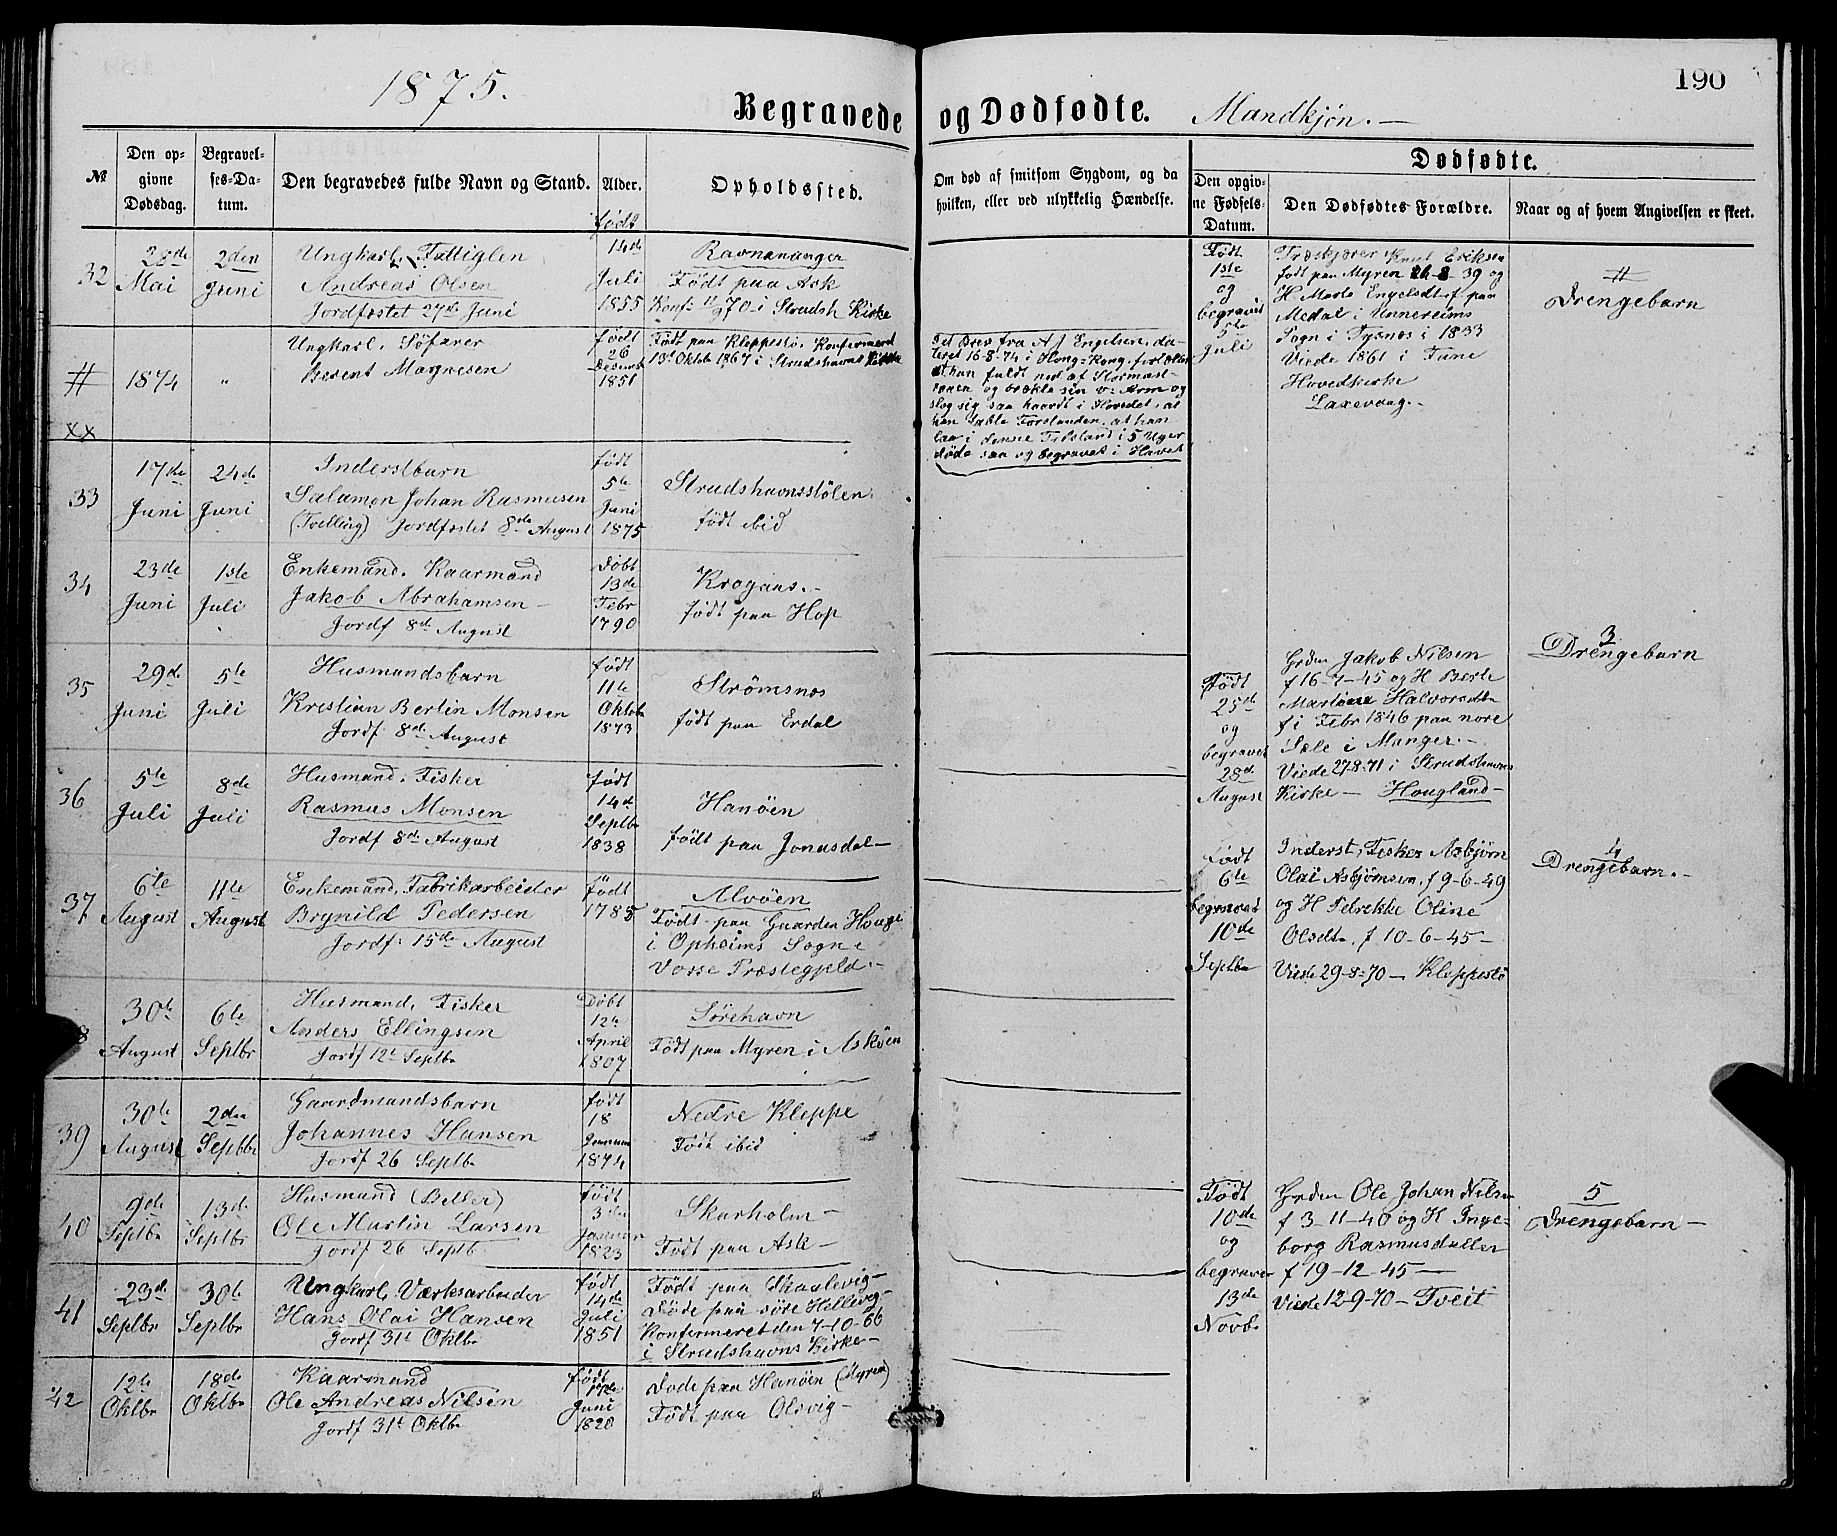 1875.
190
Begravede og Dødfødte. Mandkjøn. —
№
Den op-
givne
Dødsdag.
Begravel-
ses-Da-
tum.
Den begravedes fulde Navn og Stand.
Alder.
født
Opholdssted.
Om død af smitsom Sygdom, og da
hvilken, eller ved ulykkelig Hændelse.
Dødfødte.
Den opgiv-
ne Fødsels-
Datum.
Den Dødfødtes Forældre.
Naar og af hvem Angivelsen er skeet.
32
28de
Mai
2den
Juni
Ungkarl, Fattiglem
Andreas Olsen
Jordfæstet 27de Juni
14de
Juli
1855
Ravnananger
Født paa Ask
Konf: 70 i Strudsh Kirke
#
1874
"
Ungkarl, Søfarer
Berent Magnesen
født
26
Desemb
1851
Født paa Kleppestø, Konfirmeret
13 Oktob 1867 i Strudshavns Kirke
Brev fra A J Engelsen, da-
teret 16-8-74 i Hong-Kong, fortæller
at han faldt ned af Stormast-
raaen og brækte sin v: Arm og
slog sig saa haardt i Hovedet, at
han tabte Forstanden, at han
laa i denne Tilstand i 5 Uger
døde saa og begravet i Havet
XX
33
17de
Juni
24de
Juni
Inderstbarn
Salamon Johan Rasmusen
(Tvelling) Jordfæstet 8de August
født
5te
Juni
1875
Strudshavnsstølen
født ibid
34
23de
Juni
1ste
Juli
Enkemand, Kaarmand
Jakob Abrahamsen —
Jordf 8de August
Døbt
13de
Febr
1790
Krogaas. —
født paa Hop
35
29de
Juni
5te
Juli
Husmandsbarn
Kristian Bertin Monsen
Jordf 8de August
født
11te
Oktob
1873
Strømsnes
født paa Erdal
36
5te
Juli
8de
Juli
Husmand, Fisker
Rasmus Monsen
Jordf 8de August
født
14de
Septbr
1838
Hanøen
født paa Jonasdal —
37
6te
August
11te
August
Enkemand, Fabrikarbeider
Brynild Pedersen
Jordf: 15de August
født
1785
Alvøen
Født paa Gaarden Houge
i Opheims Sogne
Vosse Præstegjeld. —
8
30te
August
6te
Septbr
Husmand, Fisker
Anders Ellingsen
Jordf 12te Septbr
Døbt
12te
April
1807
Sørehavn
Født paa Myren i Askøen
39
30te
August
2den
Septbr
Gaardmandsbarn
Johannes Hansen
Jordf 26 Septbr
født
18
Januar
1874
Nedre Kleppe
Født ibid
40
9de
Septbr
13de
Septbr
Husmand (Betler)
Ole Martin Larsen
Jordf 26 Septb
født
3die
Januar
1823
Skarholm —
Født paa Ask —
41
23de
Septbr
30te
Septbr
Ungkarl, Værksarbeider
Hans Olai Hansen
Jordf 31te Oktbr
født
14de
Juli
1851
Født paa Skaalevig —
Døde paa søre Hellevig —
Konfirmeret den 7-10-66
i Strudshavns Kirke —
42
12te
Oktbr
18de
Oktbr
Kaarmand
Ole Andreas Nilsen
Jordf 31te Oktbr
født
17de
Juni
1820
Døde paa Hanøen (Myren)
Født paa Olsvig —
Født
1ste
og
begravet
5te
Juli
Knut Eriksen
født paa Myren 39 og
H. Marta Engelsdtr f paa
Medal i Unnereims
Sogn i Tysnes i 1833
Viede 1861 i Fane
Hovedkirke
Laxevaag. —
#
Drengebarn
Født
25de
og
begravet
28de
August
Grdm Jakob Nilsen
f 16-7-45 og H Berte
Martine Halvorsdtr
f i Febr 1846 paa nore
Sæle i Manger. —
Viede 27-8-71 i Strudshavns
Kirke — Hougland —
3
Drengebarn
Født
6te
begravet
10de
Septbr
Inderst, Fisker Asbjørn
Olai Asbjørnsen, f 9-6-49
og H Petrekke Oline
Olsdtr, f 10-6-45 —
Viede 29-8-70 — Kleppestø
4
Drengebarn. —
Født
10de
og
begravet
13de
Novbr
Grdm Ole Johan Nilsen
f 3-11-40 og H Inge-
borg Rasmusdatter
f 19-12-45 —
Viede 12-9-70 — Tveit
5
Drengebarn —